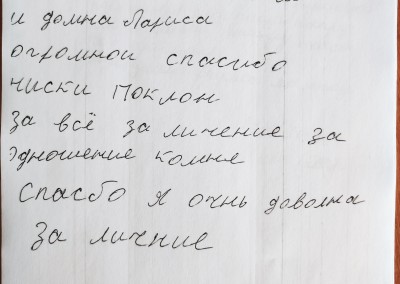 и домна Лариса
огромной спасибо
ниски поклон
за всё за личение за
Одношение комне
спасбо я очнь доволна
за личние